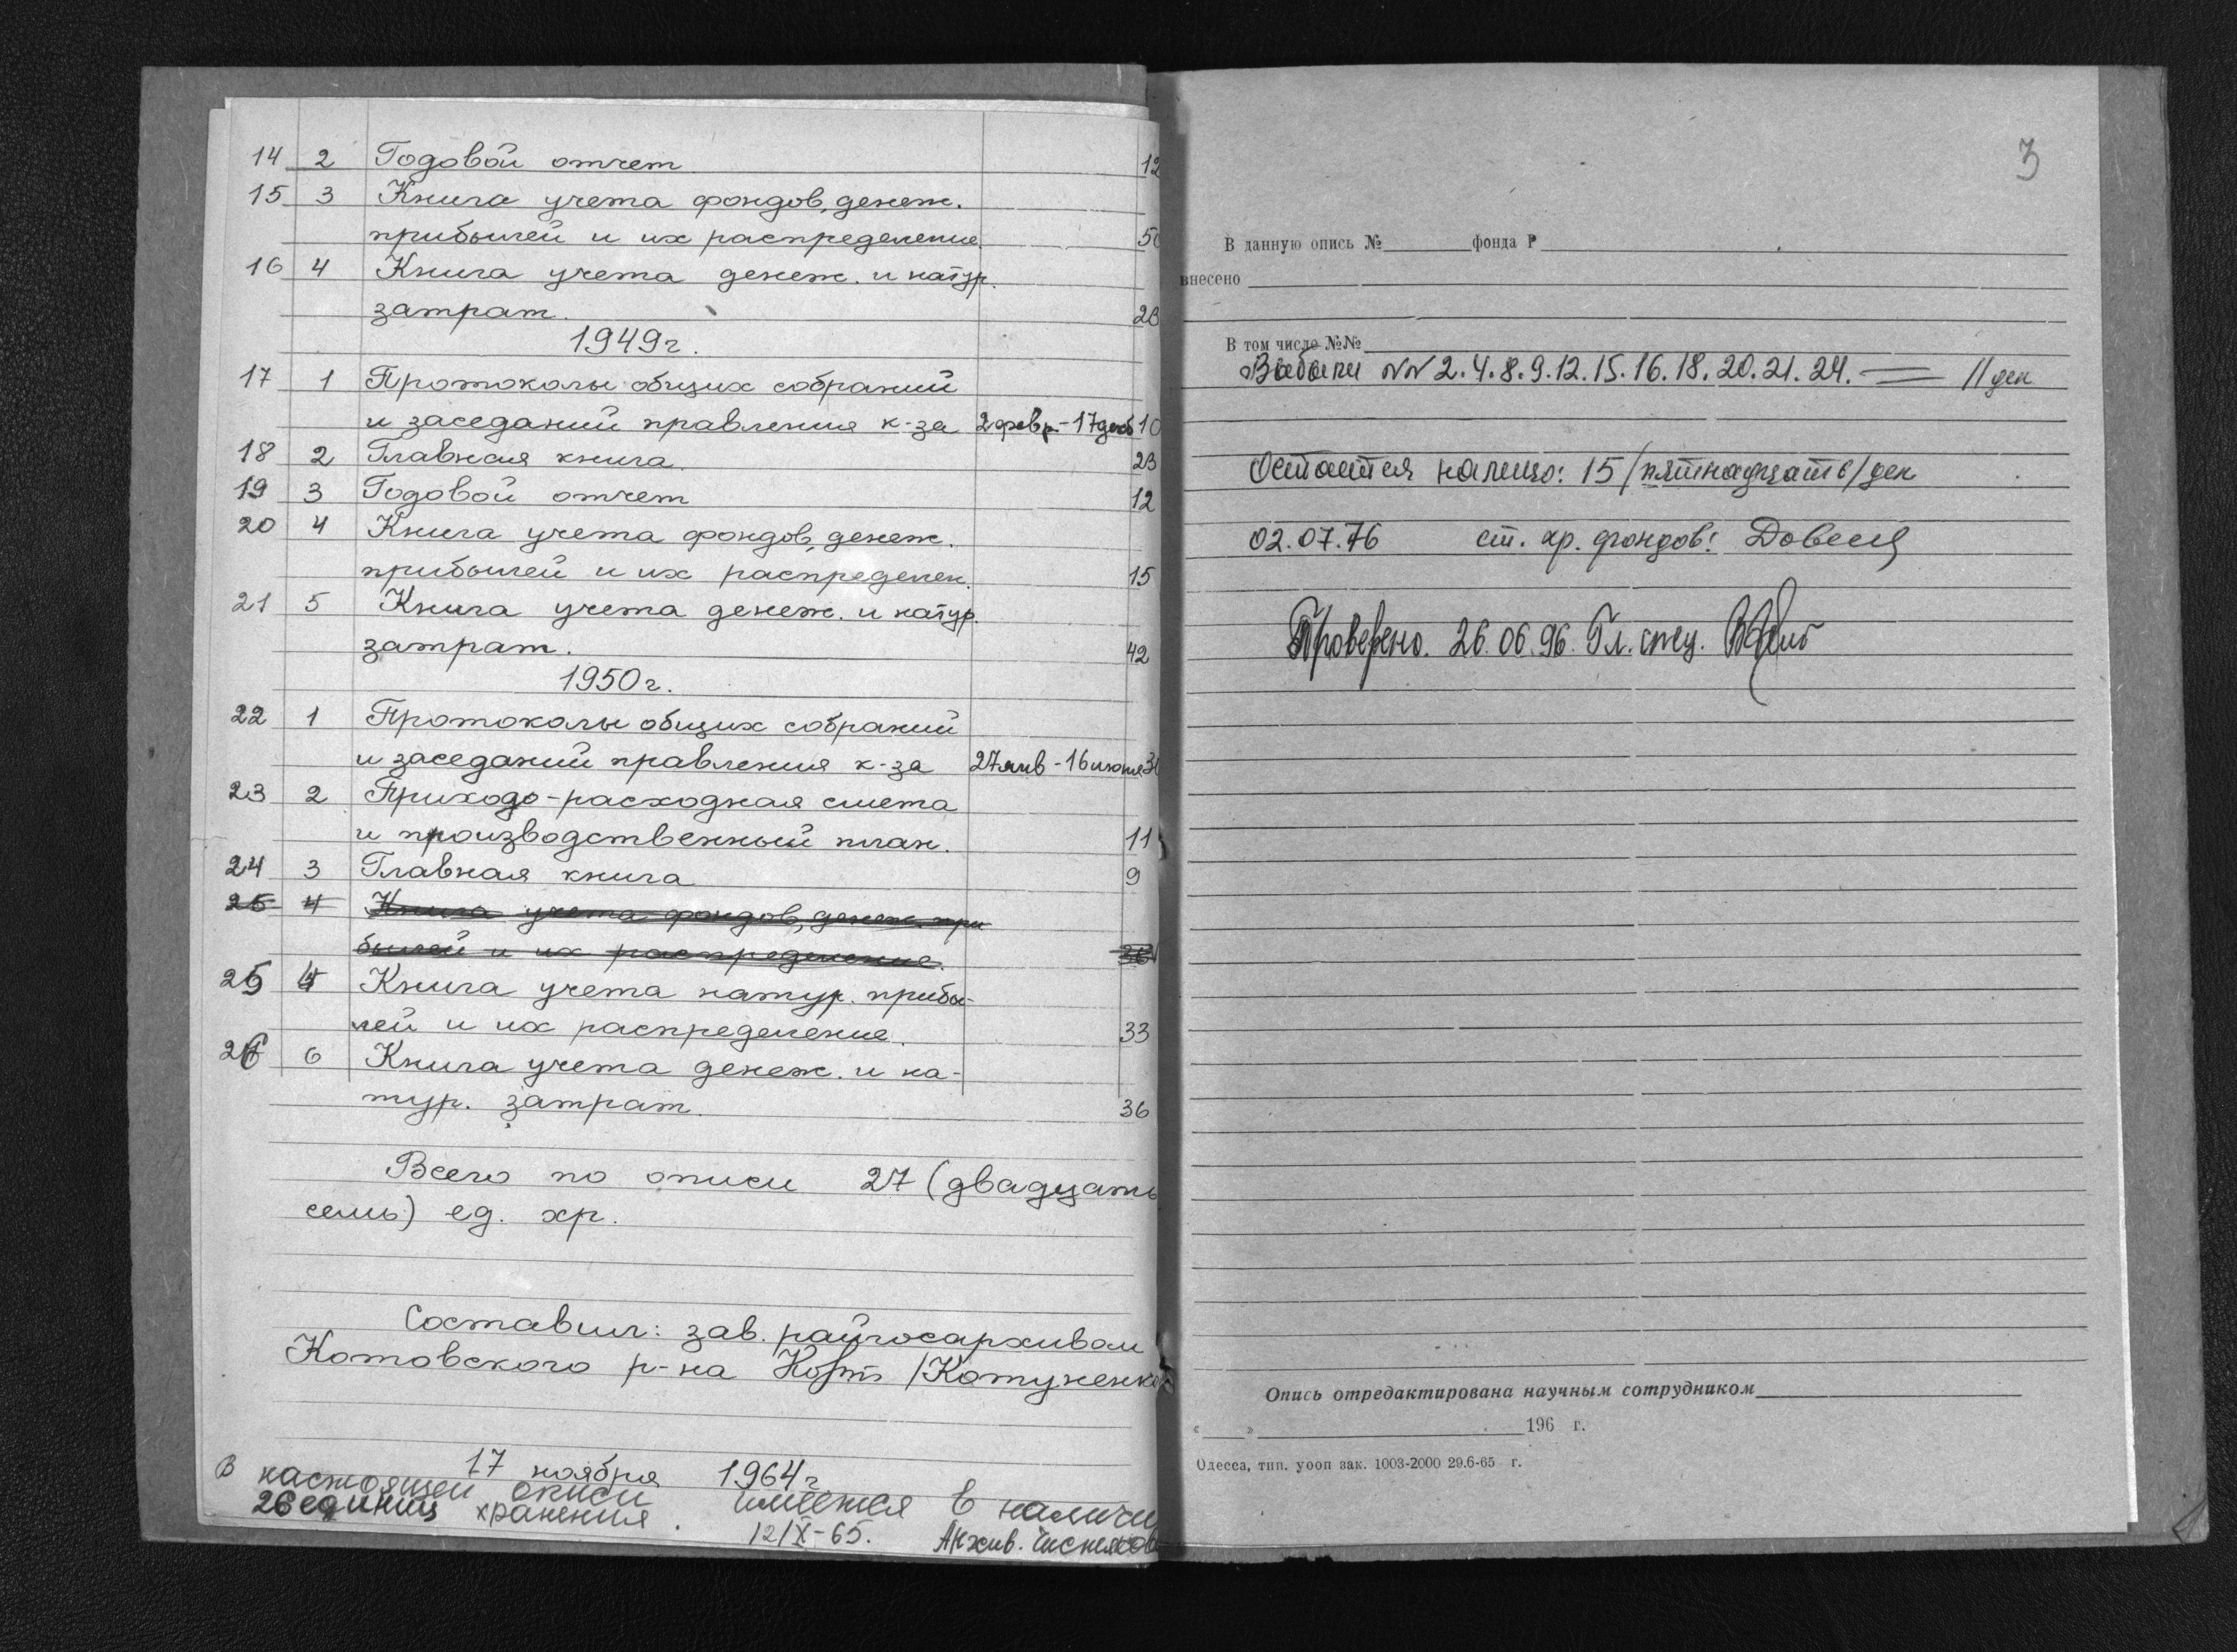 14 2 Годовой отчет 12
15 3 Книга учета фондов, денеж.
прибылей и их распределение. 50
16 4 Книга учета денеж. и натур.
затрат. 28
1949 г.
17 1 Протоколы общих собраний
и заседаний правления к-за 2 февр.-17 декаб 10
18 2 Главная книга. 23
19 3 Годовой отчет 12
20 4 Книга учета фондов, денеж.
прибылей и их распределен. 15
21 5 Книга учета денеж. и натур.
затрат. 42
1950 г.
22 1 Протоколы общих собраний
и заседаний правления к-за 27 янв - 16 июня
23 2 Приходо-расходная смета
и производственный план. 11
24 3 Главная книга 9
25 4 Книга учета фондов, денеж. при
былей и их распределение. 36
25 4 Книга учета натур. прибы-
лей и их распределение. 33
26 6 Книга учета денеж. и на-
тур. затрат. 36
Всего по описи 27 (двадцать
семь) ед. хр.
Составил: зав. райгосархивом
Котовского р-на /Котуненко
17 ноября 1964 г
В настоящей описи имеется в наличи
26 единиц хранения.
12/X-65. Архив.
3
В данную опись № фонда Р
внесено
В том числе №№
Выбыли NN 2. 4. 8. 9. 12. 15. 16. 18. 20. 21. 24. — 11 дел
Остается налицо: 15 /пятнадцать/ дел
02.07.76 ст. хр. фондов:
Проверено. 26.06.96. Гл. спец.
Опись отредактирована научным сотрудником
« » 196 г.
Одесса, тип. уооп зак. 1003-2000 29.6-65 г.